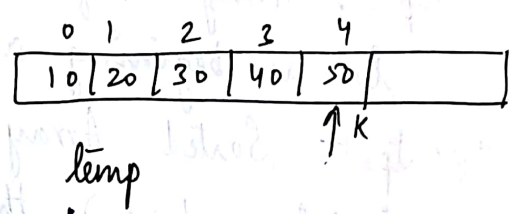 0 1 2 3 4
10 20 30 40 50
K
temp